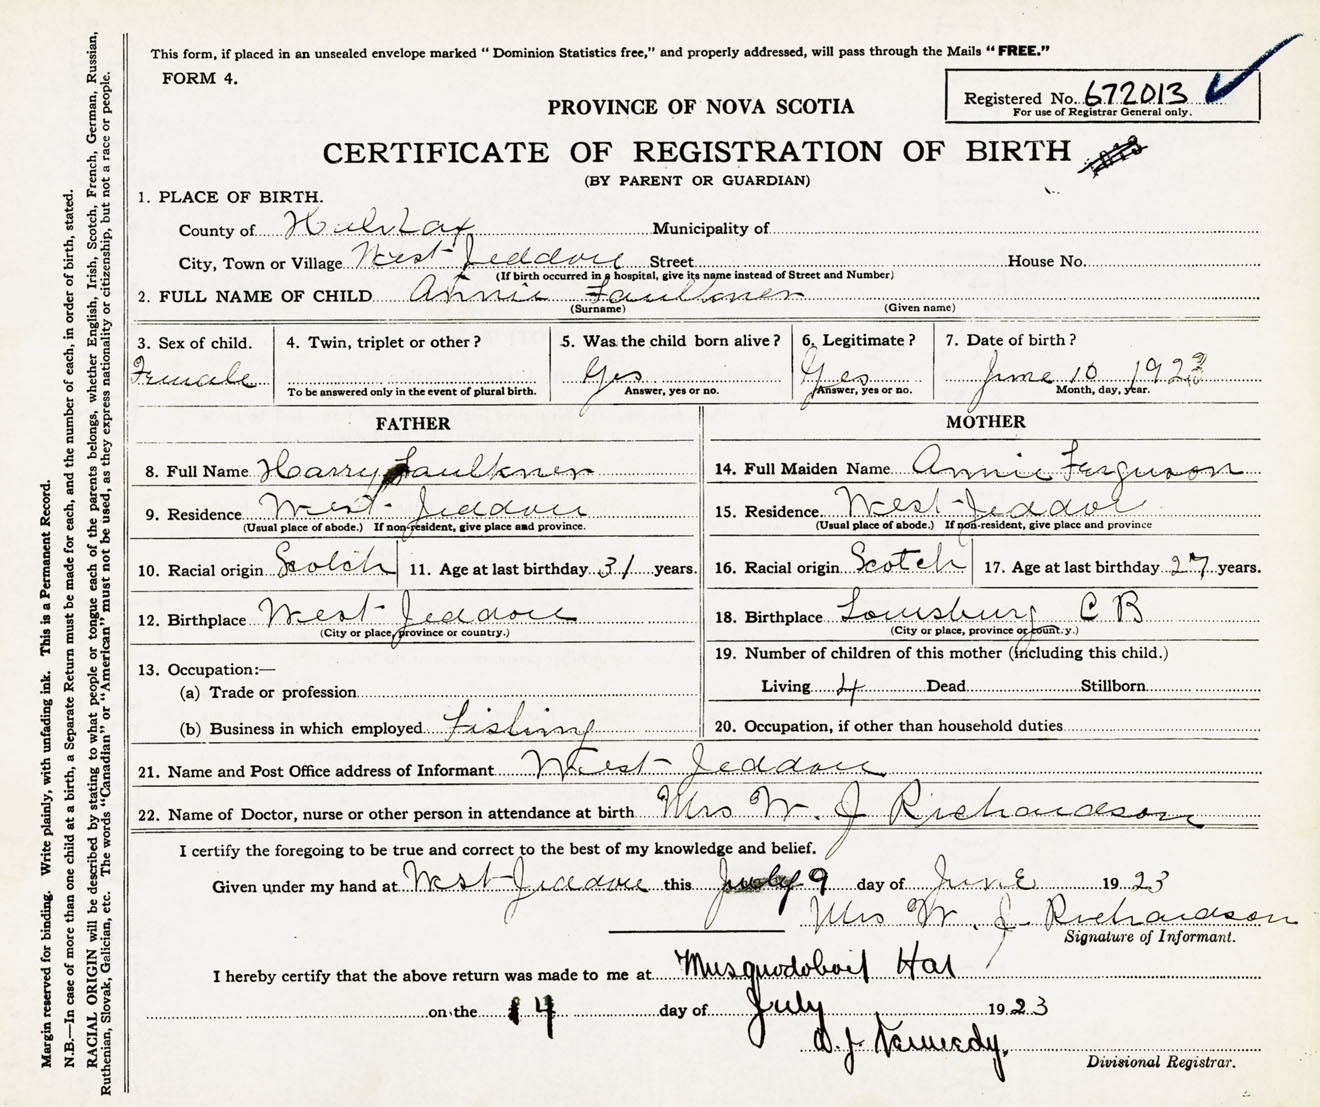 This form, if placed in an unsealed envelope marked "Dominion Statistics free," and properly addressed, will pass through the Mails "FREE."
FORM 4.
Registered No. 672013
For use of Registrar General only.
PROVINCE OF NOVA SCOTIA
CERTIFICATE OF REGISTRATION OF BIRTH
(BY PARENT OR GUARDIAN)
1. PLACE OF BIRTH.
County of Halifax Municipality of
City, Town or Village West Jeddore Street House No.
(If birth occurred in a hospital, give its name instead of Street and Number)
2. FULL NAME OF CHILD Annie Faulkner
(Surname) (Given name)
3. Sex of child. 4. Twin, triplet or other? 5. Was the child born alive? 6. Legitimate? 7. Date of birth?
Female Yes Yes June 10 1923
To be answered only in the event of plural birth. Answer, yes or no. Answer, yes or no. Month, day, year.
FATHER MOTHER
8. Full Name Harry Faulkner 14. Full Maiden Name Annie Ferguson
9. Residence West Jeddore 15. Residence West Jeddore
(Usual place of abode.) If non-resident, give place and province. (Usual place of abode.) If non-resident, give place and province
10. Racial origin Scotch 11. Age at last birthday 31 years. 16. Racial origin Scotch 17. Age at last birthday 27 years.
12. Birthplace West Jeddore 18. Birthplace Louisburg C B
(City or place, province or country.) (City or place, province or country.)
13. Occupation:— 19. Number of children of this mother (including this child.)
(a) Trade or profession Living 4 Dead Stillborn
(b) Business in which employed Fishing 20. Occupation, if other than household duties
21. Name and Post Office address of Informant West Jeddore
22. Name of Doctor, nurse or other person in attendance at birth Mrs W. J Richardson
I certify the foregoing to be true and correct to the best of my knowledge and belief.
Given under my hand at West Jeddore this 9 day of June 1923
Mrs W. J. Richardson
Signature of Informant.
I hereby certify that the above return was made to me at Musquodoboit Har
on the 14 day of July 1923
Kennedy.
Divisional Registrar.
Margin reserved for binding. Write plainly, with unfading ink. This is a Permanent Record.
N.B.—In case of more than one child at a birth, a Separate Return must be made for each, and the number of each, in order of birth, stated.
RACIAL ORIGIN will be described by stating to what people or tongue each of the parents belongs, whether English, Irish, Scotch, French, German, Russian,
Ruthenian, Slovak, Galician, etc. The words "Canadian" or "American" must not be used, as they express nationality or citizenship, but not a race or people.